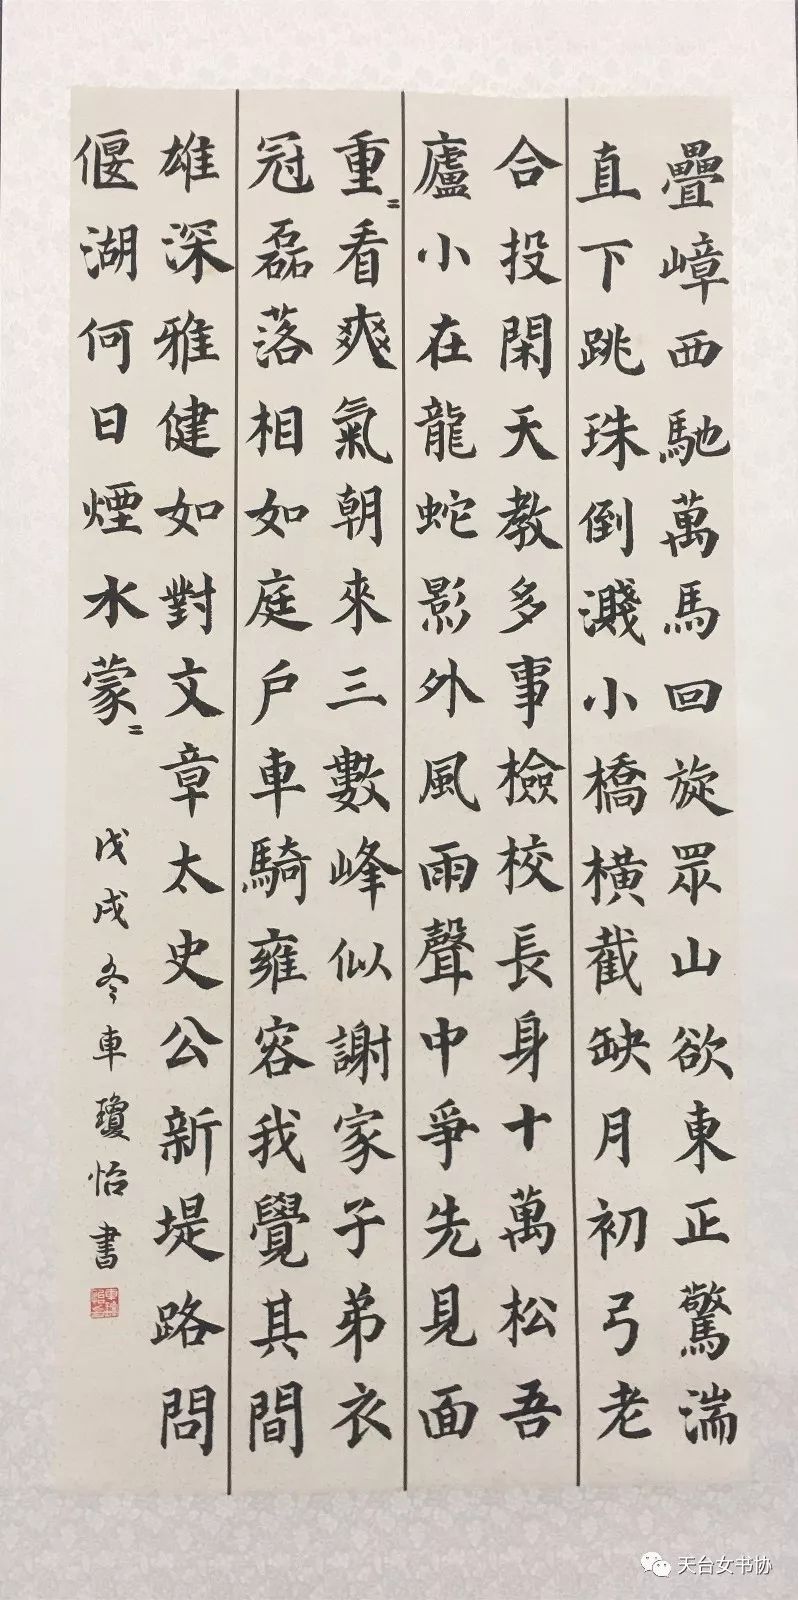 疊嶂西馳萬馬回旋眾山欲東正驚湍
直下跳珠倒濺小橋橫截缺月初弓老
合投閑天教多事檢校長身十萬松吾
廬小在龍蛇影外風雨聲中爭先見面
重〻看爽氣朝來三數峰似謝家子弟衣
冠磊落相如庭戶車騎雍容我覺其間
雄深雅健如對文章太史公新堤路問
偃湖何日煙水蒙〻
戊戌冬車瓊怡書
天台女书协